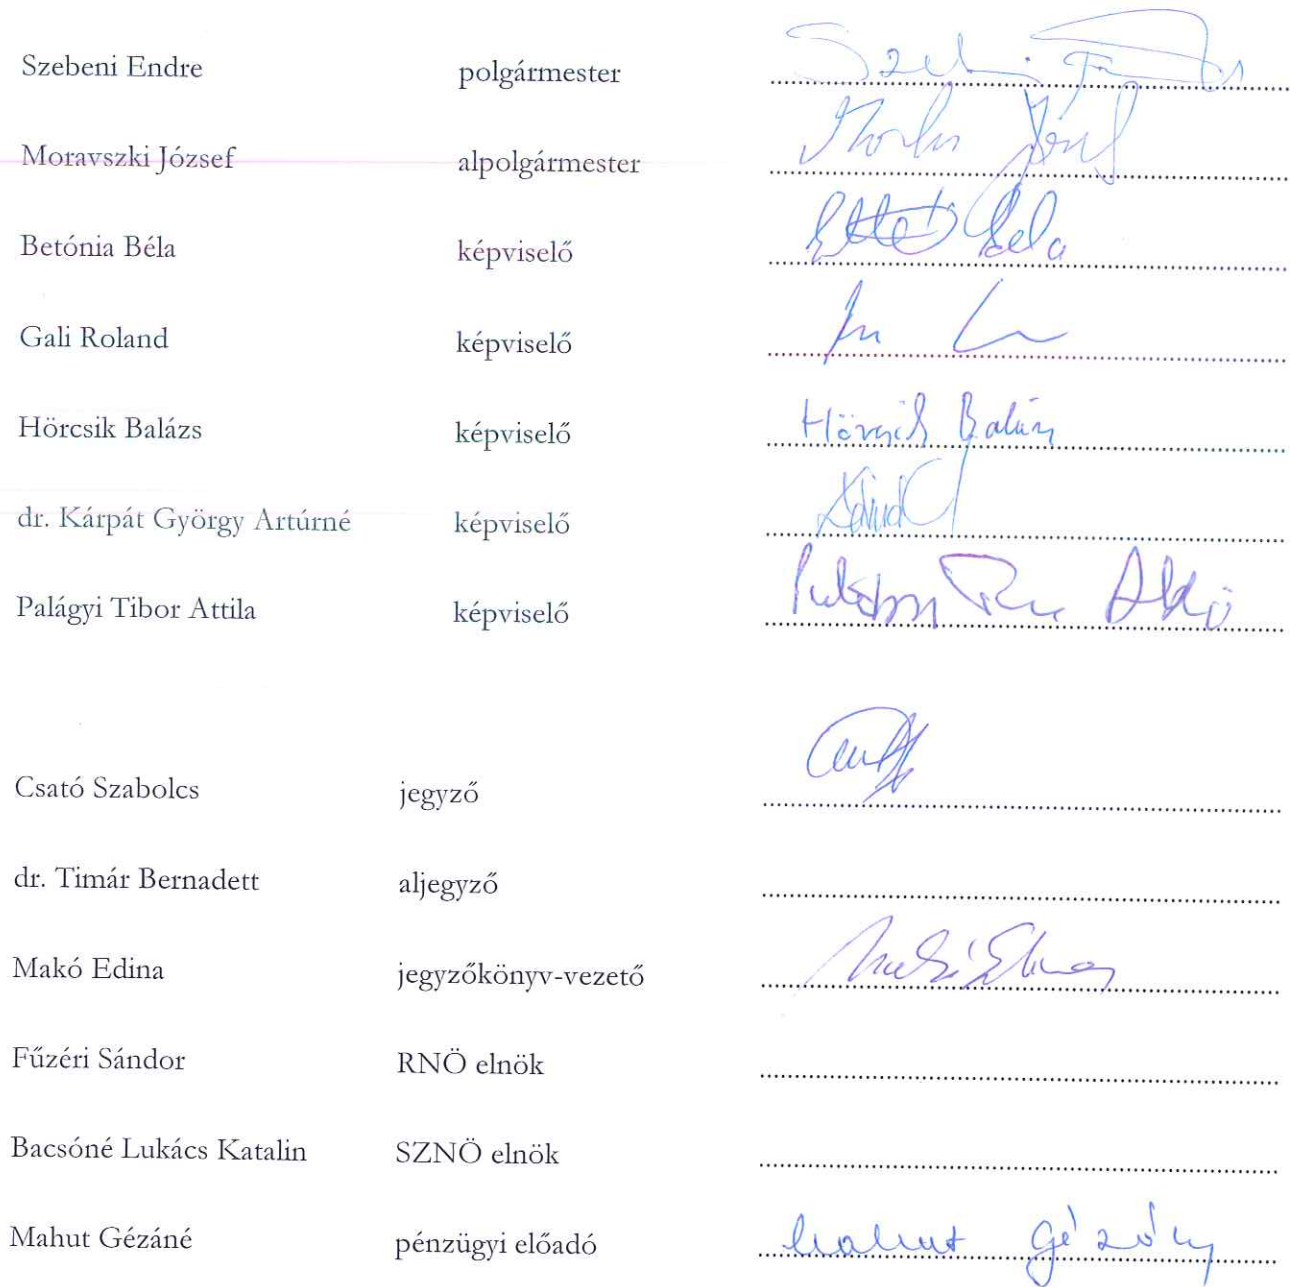 Szebeni Endre polgármester
Moravszki József alpolgármester
Betónia Béla képviselő Béla
Gali Roland képviselő
Hörcsik Balázs képviselő Hörcsik Balázs
dr. Kárpát György Artúrné képviselő
Palágyi Tibor Attila képviselő
Csató Szabolcs jegyző
dr. Timár Bernadett aljegyző
Makó Edina jegyzőkönyv-vezető
Fűzéri Sándor RNÖ elnök
Bacsóné Lukács Katalin SZNÖ elnök
Mahut Gézáné pénzügyi előadó Mahut Gézáné